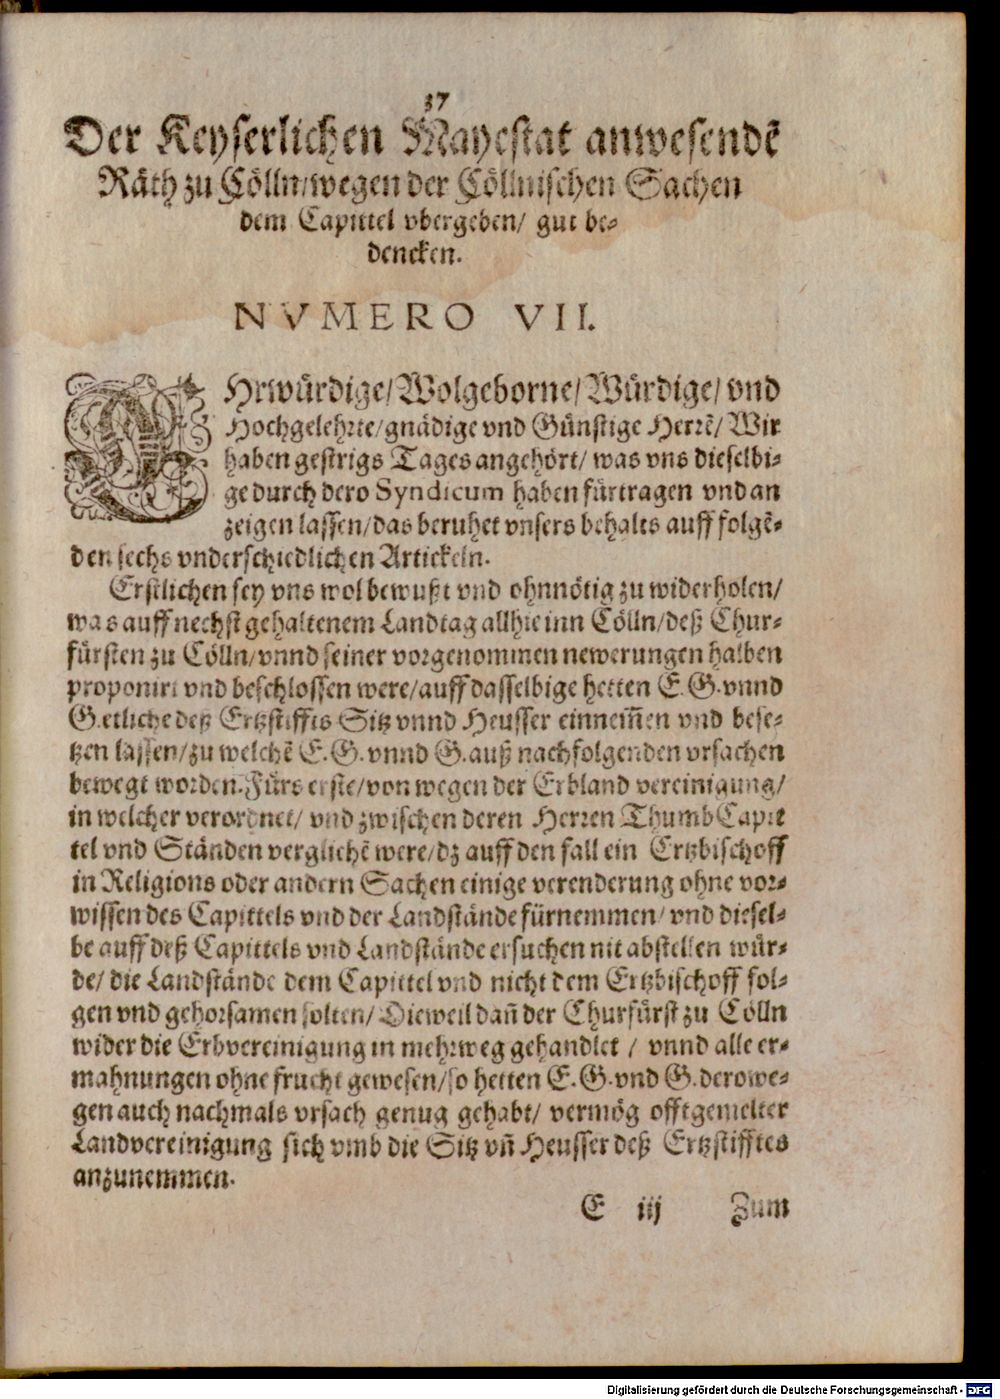 37
Der Keyserlichen Mayestat anwesendẽ
Räth zu Cölln/wegen der Cöllnischen Sachen
dem Capittel vbergeben/ gut be-
dencken.
NVMERO VII.
EHrwürdige/Wolgeborne/Würdige/ vnd
Hochgelehrte/gnädige vnd Günstige Herrẽ/ Wir
haben gestrigs Tages angehört/ was vns dieselbi-
ge durch dero Syndicum haben fürtragen vnd an
zeigen lassen/das beruhet vnsers behalts auff folgẽ-
den sechs vnderschiedlichen Artickeln.
Erstlichen sey vns wol bewußt vnd ohnnötig zu widerholen/
was auff nechst gehaltenem Landtag allhie inn Cölln/deß Chur-
fürsten zu Cölln/vnnd seiner vorgenommen newerungen halben
proponirt vnd beschlossen were/auff dasselbige hetten E. G. vnnd
G. etliche deß Ertzstiffts Sitz vnnd Heusser einnem̃en vnd bese-
tzen lassen/zu welchẽ E. G. vnnd G. auß nachfolgenden vrsachen
bewegt worden. Fürs erste/von wegen der Erbland vereinigung/
in welcher verordnet/ vnd zwischen deren Herren Thumb Capit
tel vnd Ständen verglichẽ were/dz auff den fall ein Ertzbischoff
in Religions oder andern Sachen einige verenderung ohne vor-
wissen des Capittels vnd der Landstände fürnemmen/ vnd diesel-
be auff deß Capittels vnd Landstände ersuchen nit abstellen wür-
de/ die Landstände dem Capittel vnd nicht dem Ertzbischoff fol-
gen vnd gehorsamen solten/ Dieweil dañ der Churfürst zu Cölln
wider die Erbvereinigung in mehrweg gehandlet / vnnd alle er-
mahnungen ohne frucht gewesen/so hetten E. G. vnd G. derowe-
gen auch nachmals vrsach genug gehabt/ vermög offtgemelter
Landvereinigung sich vmb die Sitz vñ Heusser deß Ertzstifftes
anzunemmen.
E iij Zum
Digitalisierung gefördert durch die Deutsche Forschungsgemeinschaft - DFG